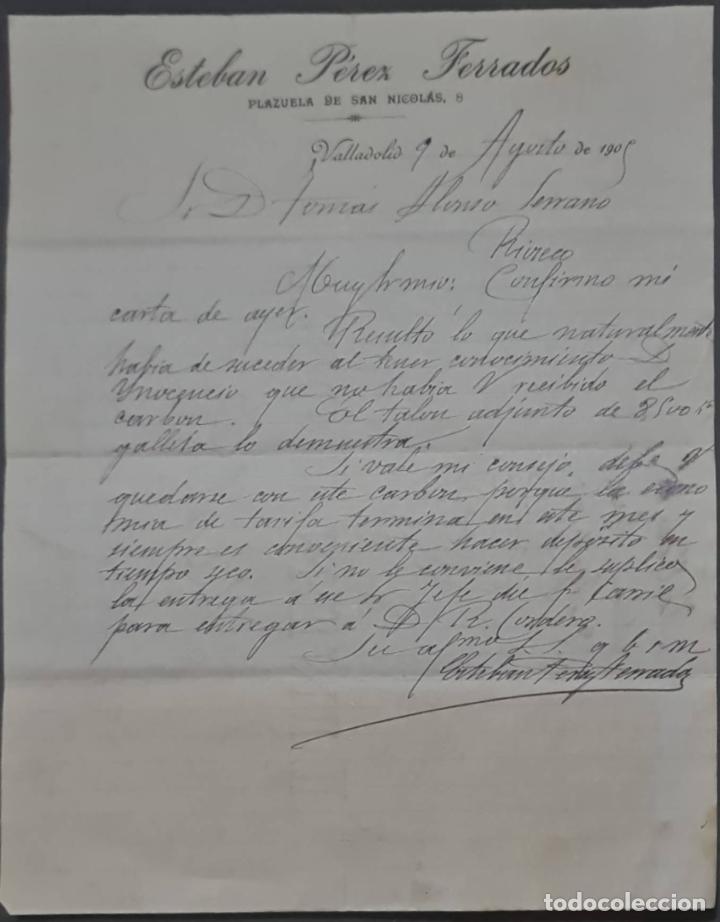 Esteban Pérez Ferrados
PLAZUELA DE SAN NICOLÁS, 8
Valladolid 9 de Agosto de 1905
Sr D Tomás Alonso Serrano
Rioseco
Muy Sr mio: Confirmo mi
carta de ayer.
Resultó lo que naturalmente
habia de suceder al tener conocimiento D
Ynocencio que no habia V recibido el
carbon. El talon adjunto de 8,500 Ks
galleta lo demuestra.
Si vale mi consejo, debe V
quedarse con este carbon, porque la econo
mia de tarifa termina en este mes y
siempre es conveniente hacer depósito en
tiempo seco. Si no le conviene le suplico
la entrega a ese Sr Jefe del f. carril
para entregar á D R.
Su afmo S. S. q b s m
Esteban Perez Ferrados
todocoleccion.net